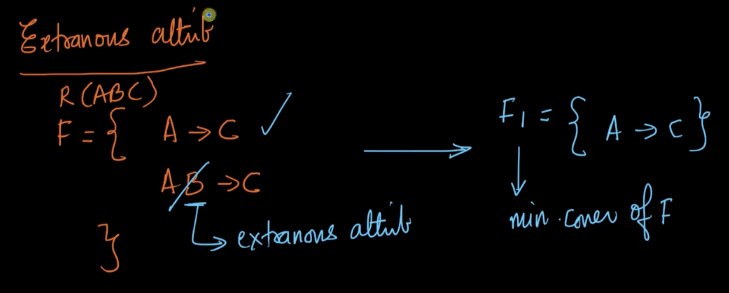 Extranous attrib
R(ABC)
F = { A → C ✓
AB → C
}
extranous attrib
F1 = { A → C }
min. cover of F